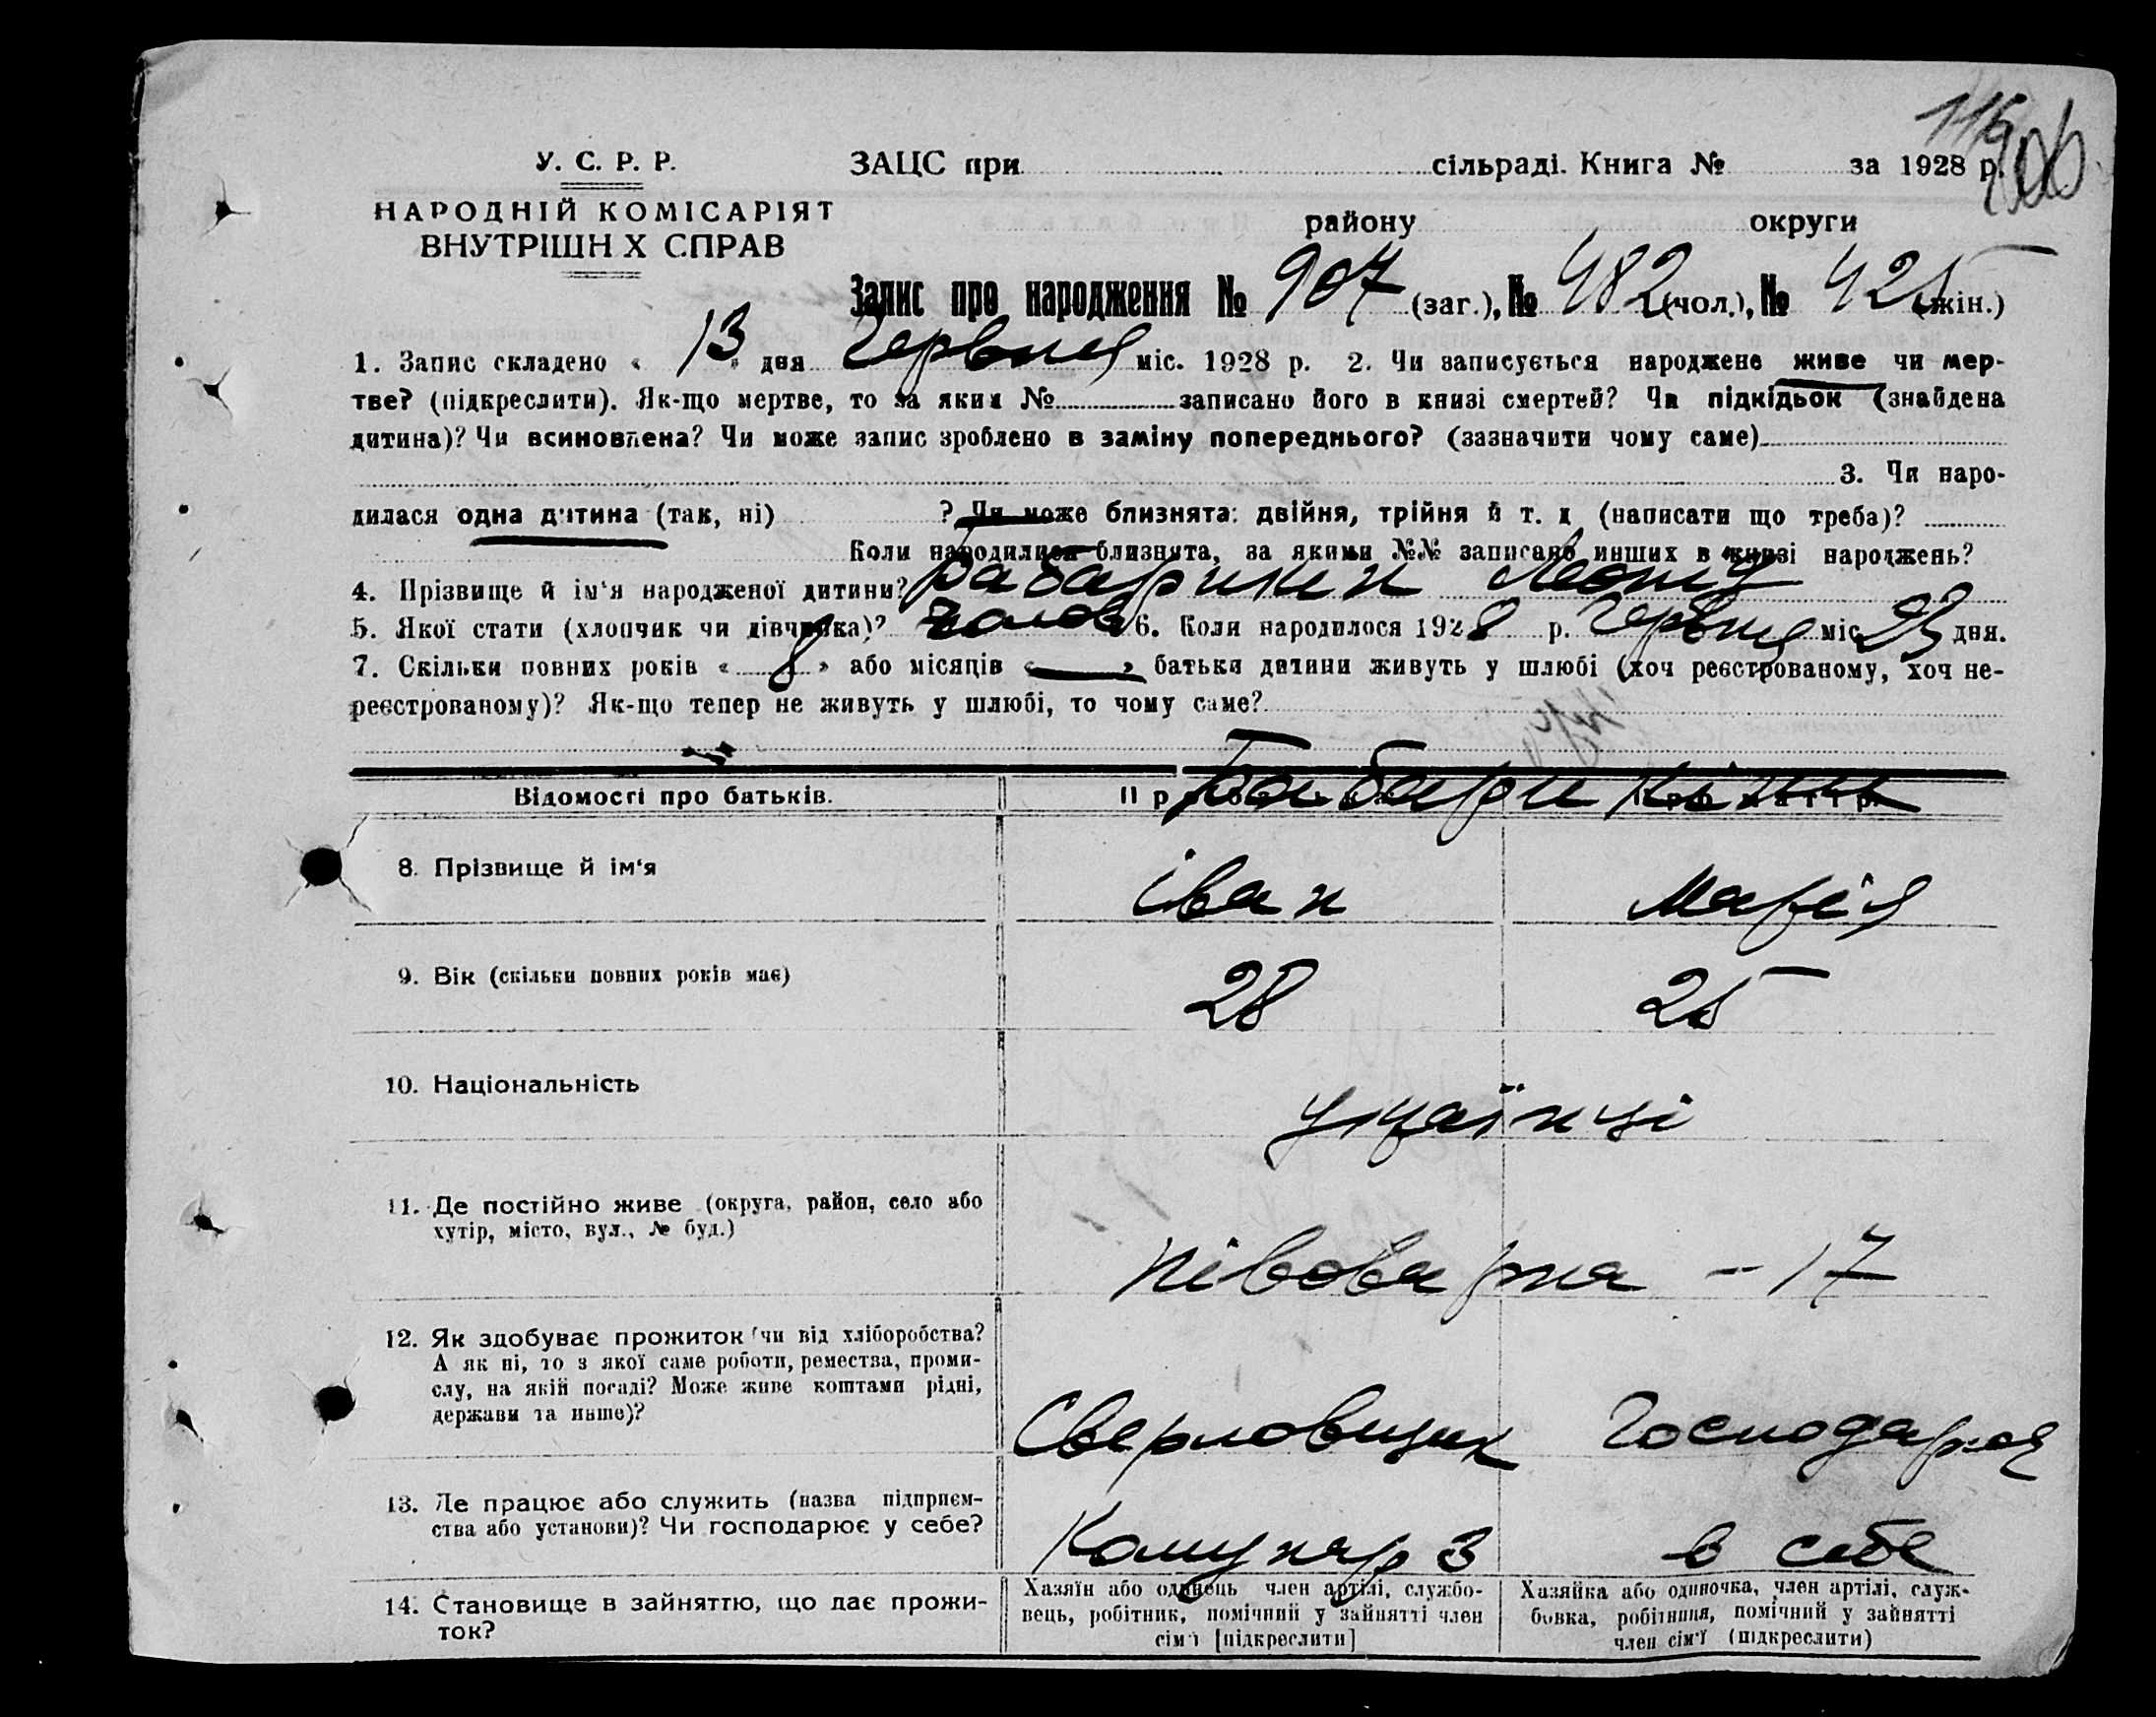 116
У. С. Р. Р.
ЗАЦС при сільраді. Книга № за 1928 р.
НАРОДНІЙ КОМІСАРІЯТ
ВНУТРІШН Х СПРАВ
району округи
Запис про народження № 907 (заг.), № 482 (чол.), № 425 (жін.)
1. Запис складено « 13 » дня Червня міс. 1928 р. 2. Чи записується народжене живе чи мер-
тве? (підкреслити). Як-що мертве, то за яким № записано його в книзі смертей? Чи підкідьок (знайдена
дитина)? Чи всиновлена? Чи може запис зроблено в заміну попереднього? (зазначити чому саме)
3. Чи наро-
дилася одна дитина (так, ні) ? Чи може близнята: двійня, трійня й т. д (написати що треба)?
Коли народилися близнята, за якими №№ записано инших в книзі народжень?
4. Прізвище й ім'я народженої дитини? Бабарикин Леонід
5. Якої стати (хлопчик чи дівчинка)? 6. Коли народилося 1928 р. Червня міс дня.
7. Скільки повних років « 8 » або місяців « — » батьки дитини живуть у шлюбі (хоч реєстрованому, хоч не-
реєстрованому)? Як-що тепер не живуть у шлюбі, то чому саме?
Відомості про батьків.
Бабарикіни
8. Прізвище й ім'я Іван Марія
9. Вік (скільки повних років має) 28 25
10. Національність українці
11. Де постійно живе (округа, район, село або
хутір, місто, вул., № буд.)
Півоварна - 17
12. Як здобуває прожиток (чи від хліборобства?
А як ні, то з якої саме роботи, ремества, проми-
слу, на якій посаді? Може живе коштами рідні,
держави та инше)?
Сверловщик Господарня
13. Де працює або служить (назва підприєм-
ства або установи)? Чи господарює у себе?
Комунар 3 в себе
14. Становище в зайняттю, що дає прожи-
ток?
Хазяїн або одинець член артілі, службо-
вець, робітник, помічний у зайнятті член
сім'ї [підкреслити]
Хазяйка або одиночка, член артілі, служ-
бовка, робітниця, помічний у зайнятті
член сім'ї (підкреслити)